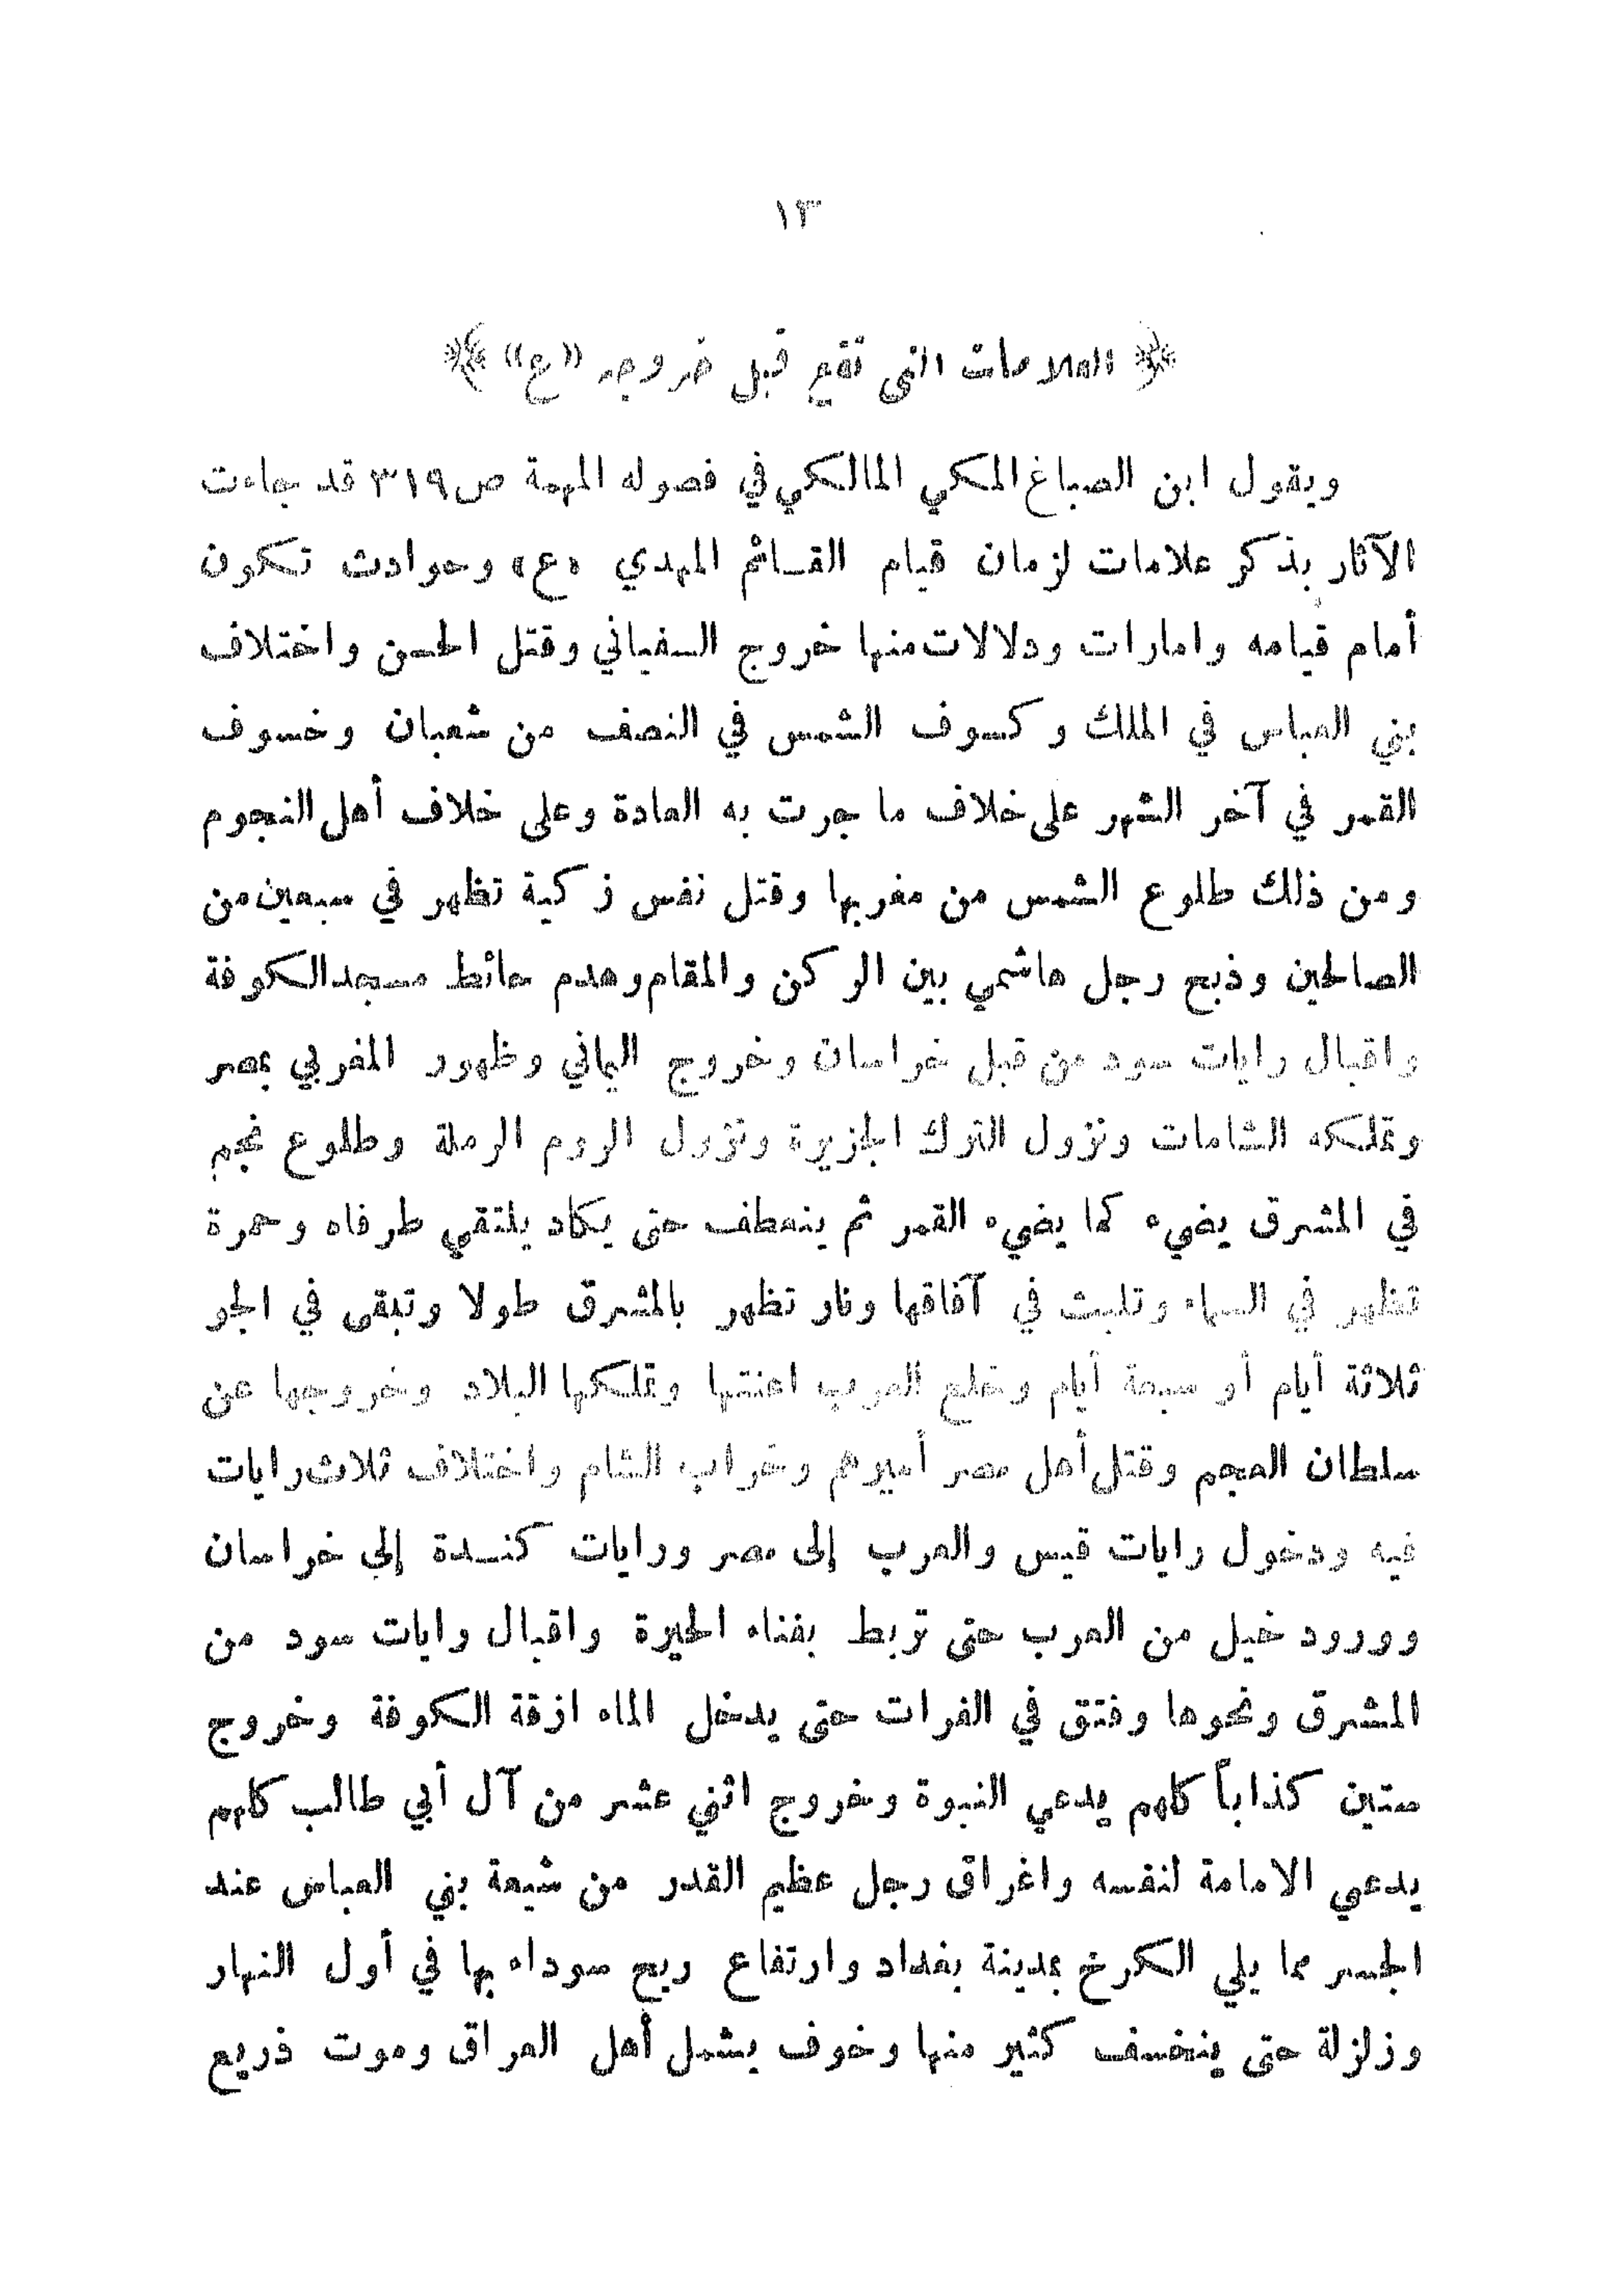 ١٣
﴿ العلامات التي تقع قبل خروجه «ع» ﴾
ويقول ابن الصباغ المكي المالكي في فصوله المهمة ص٣١٩ قد جاءت
الآثار بذكر علامات لزمان قيام القائم المهدي «ع» وحوادث تكون
أمام قيامه وامارات ودلالات منها خروج السفياني وقتل الحسن واختلاف
بني العباس في الملك وكسوف الشمس في النصف من شعبان وخسوف
القمر في آخر الشهر على خلاف ما جرت به العادة وعلى خلاف أهل النجوم
ومن ذلك طلوع الشمس من مغربها وقتل نفس زكية تظهر في سبعين من
الصالحين وذبح رجل هاشمي بين الركن والمقام وهدم حائط مسجد الكوفة
واقبال رايات سود من قبل خراسان وخروج اليماني وظهور المغربي بمصر
وتملكه الشامات ونزول الترك الجزيرة ونزول الروم الرملة وطلوع نجم
في المشرق يضيء كما يضيء القمر ثم ينعطف حتى يكاد يلتقي طرفاه وحمرة
تظهر في السماء وتلبث في آفاقها ونار تظهر بالمشرق طولا وتبقى في الجو
ثلاثة أيام أو سبعة أيام وخلع العرب اعنتها وتملكها البلاد وخروجها عن
سلطان العجم وقتل أهل مصر أميرهم وخراب الشام واختلاف ثلاث رايات
فيه ودخول رايات قيس والعرب إلى مصر ورايات كندة إلى خراسان
وورود خيل من العرب حتى تربط بفناء الحيرة واقبال رايات سود من
المشرق ونحوها وفتق في الفرات حتى يدخل الماء ازقة الكوفة وخروج
ستين كذاباً كلهم يدعي النبوة وخروج اثني عشر من آل أبي طالب كلهم
يدعي الامامة لنفسه واغراق رجل عظيم القدر من شيعة بني العباس عند
الجسر مما يلي الكرخ بمدينة بغداد وارتفاع ريح سوداء بها في أول النهار
وزلزلة حتى ينخسف كثير منها وخوف يشمل أهل العراق وموت ذريع